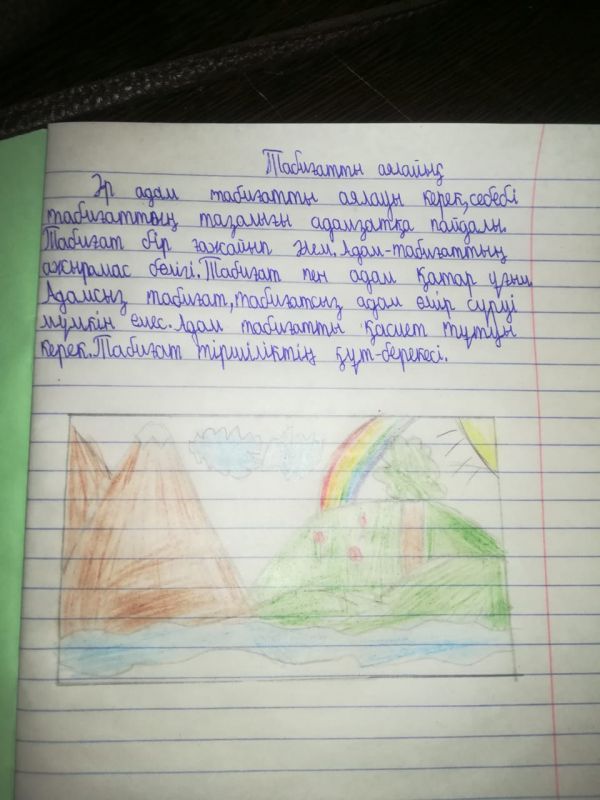 Табиғатты аялайық
Әр адам табиғатты аялауы керек, себебі
табиғаттың тазалығы адамзатқа пайдалы.
Табиғат бір ғажайып әлем. Адам-табиғаттың
ажырамас бөлігі. Табиғат пен адам қатар ұғым.
Адамсыз табиғат, табиғатсыз адам өмір сүруі
мүмкін емес. Адам табиғатты қасиет тұтуы
керек. Табиғат тіршіліктің құт-берекесі.